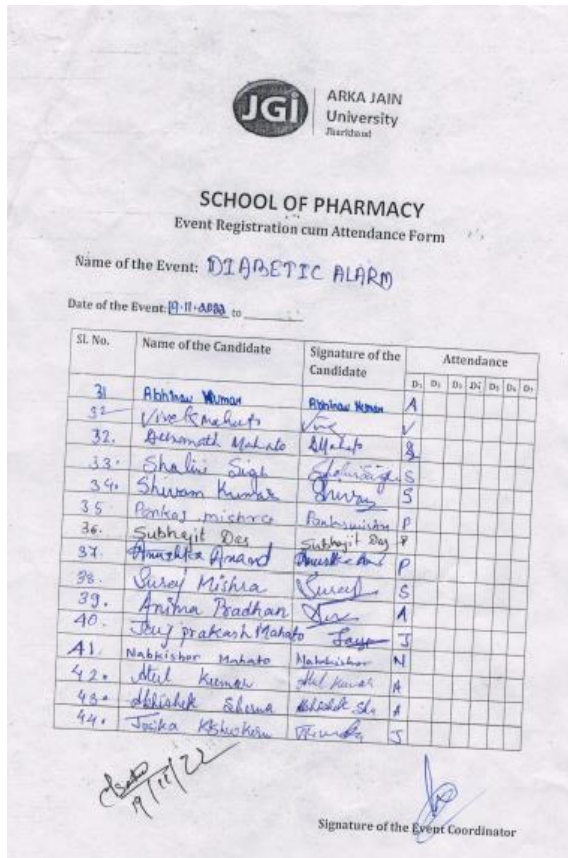 JGI
ARKA JAIN
University
Jharkhand
SCHOOL OF PHARMACY
Event Registration cum Attendance Form
Name of the Event: DIABETIC ALARM
Date of the Event: 19-11-2022 to
Sl. No. Name of the Candidate Signature of the Candidate Attendance
D1 D2 D3 D4 D5 D6 D7
31 Abhinaw Kumar Abhinaw Kumar A
32 Vivek Mahato V
32. Mahato
33. Shalini Singh Shalini Singh S
34. Shivam Kumar Shivam S
35 Pankaj mishra Pankaj mishra P
36. Subhajit Das Subhajit Das
37. Anushka Anand P
38. Suraj Mishra Suraj S
39. Anima Pradhan A
40. prakash Mahato J
41. Nabkishor Mahato Nabkishor N
42. Atul Kumar Atul Kumar A
43. Abhishek Sharma Abhishek A
44. J
19/11/22
Signature of the Event Coordinator